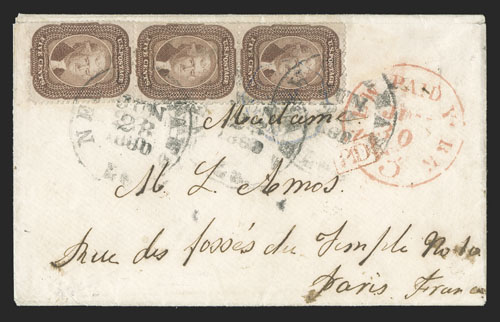 U.S. POSTAGE U.S. POSTAGE U.S. POSTAGE
FIVE CENTS FIVE CENTS FIVE CENTS
JUN
22
1860
PAID
Madame
M L Amos.
Rue des fossés du Temple No
Paris France